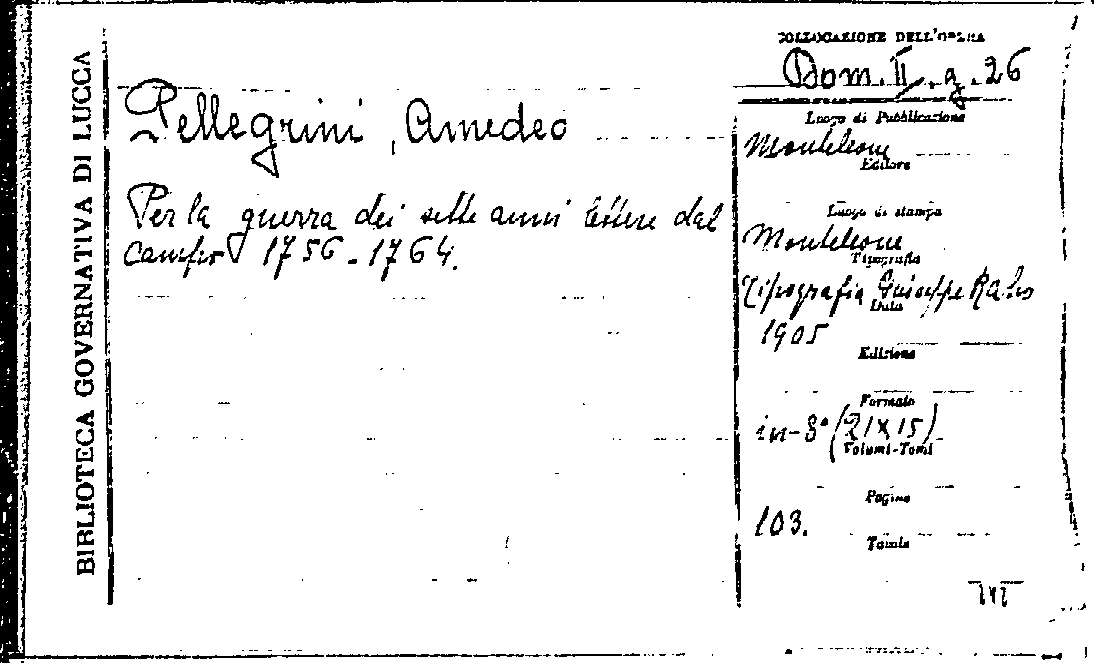 BIBLIOTECA GOVERNATIVA DI LUCCA
Pellegrini, Amedeo
Per la guerra dei sette anni lettere dal
campo 1756-1764.
COLLOCAZIONE DELL'OPERA
Dom. II. g. 26
Luogo di Pubblicazione
Monteleone
Editore
Luogo di stampa
Monteleone
Tipografia
Tipografia Giuseppe Raho
Data
1905
Edizione
Formato
in-8° (21X15)
Volumi-Tomi
Pagine
103.
Tavole